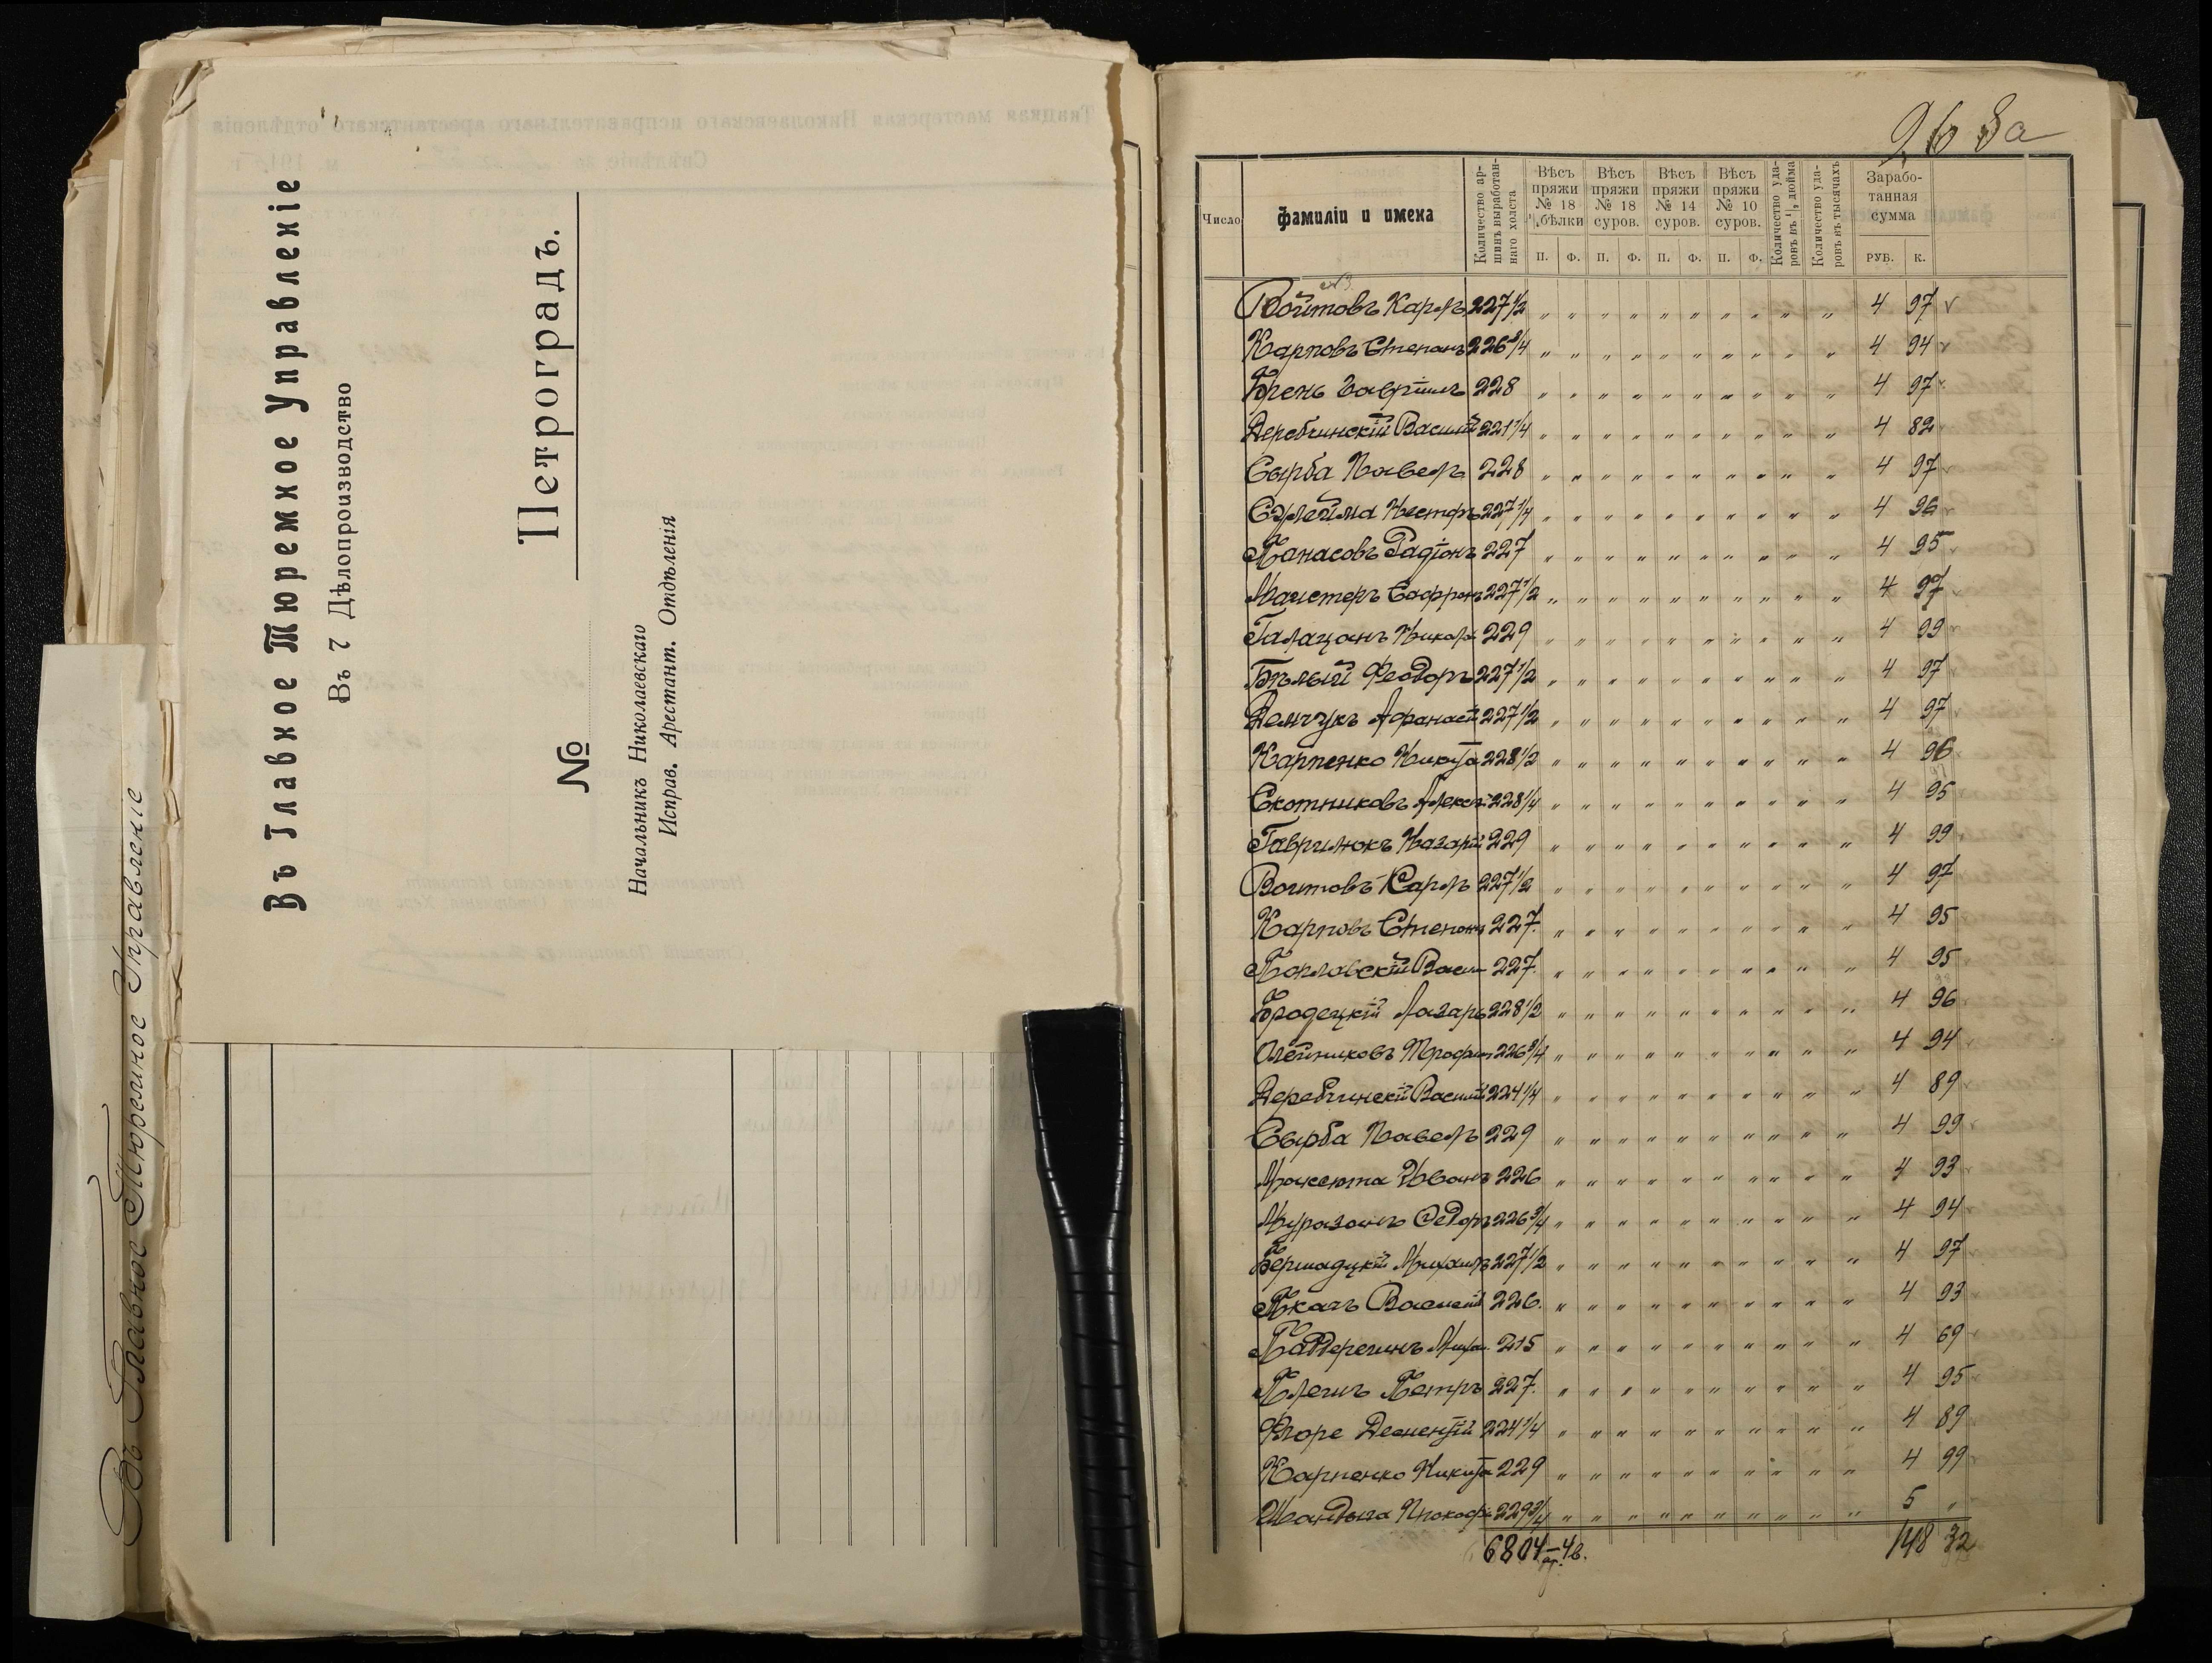 Въ Главное Тюремное Управленіе
Въ Главное Тюремное Управленіе
Въ 7 Дѣлопроизводство
Петроградъ.
№
Начальникъ Николаевскаго
Исправ. Арестант. Отдѣленія
Число
Фамиліи и имена
Количество аршинъ выработаннаго холста
Вѣсъ пряжи № 18 бѣлки
Вѣсъ пряжи № 18 суров.
Вѣсъ пряжи № 14 суров.
Вѣсъ пряжи № 10 суров.
Количество ударовъ въ дюйма
Количество ударовъ въ тысячахъ
Заработанная сумма
П. Ф. П. Ф. П. Ф. П. Ф. РУБ. К.
Войтовъ Карлъ 227 1/2 " " " " " " " " " " 4 97
Карповъ Степанъ 226 3/4 " " " " " " " " " " 4 94
Брень Гавріилъ 228 " " " " " " " " " " 4 97
Деребчинскій Василій 221 1/4 " " " " " " " " " " 4 82
Сырба Павелъ 228 " " " " " " " " " " 4 97
Сулейма Нестеръ 227 1/4 " " " " " " " " " " 4 96
Панасовъ Радіонъ 227 " " " " " " " " " " 4 95
Магистеръ Сафронъ 227 1/2 " " " " " " " " " " 4 97
Галацанъ Никола 229 " " " " " " " " " " 4 99
Бѣлый Феодоръ 227 1/2 " " " " " " " " " " 4 97
Демчукъ Афанасій 227 1/2 " " " " " " " " " " 4 97
Карпенко Никита 228 1/2 " " " " " " " " " " 4 96
Скотниковъ Алексѣй 228 1/4 " " " " " " " " " " 4 95
Гаврилюкъ Назарій 229 " " " " " " " " " " 4 99
Войтовъ Карлъ 227 1/2 " " " " " " " " " " 4 97
Карповъ Степанъ 227. " " " " " " " " " " 4 95
Порлавскій Васи 227. " " " " " " " " " " 4 95
Бродецкій Лазарь 228 1/2 " " " " " " " " " " 4 96
Олейниковъ Трофим 226 3/4 " " " " " " " " " " 4 94
Деребчинскій Василій 224 1/4 " " " " " " " " " " 4 89
Сырба Павелъ 229 " " " " " " " " " " 4 99
Иванъ 226 " " " " " " " " " " 4 93
Мурозанъ Ѳедоръ 226 3/4 " " " " " " " " " " 4 94
Бершадцкій Михаилъ 227 1/2 " " " " " " " " " " 4 97
Ткачъ Василій 226. " " " " " " " " " " 4 93
Михаи. 215 " " " " " " " " " " 4 69
Петръ 227. " " " " " " " " " " 4 95
Флоре 224 1/4 " " " " " " " " " " 4 89
Карпенко Никита 229 " " " " " " " " " " 4 99
Шандыга Прокофі 229 3/4 " " " " " " " " " " 5 "
6804 ар. — 4 в. 148 32